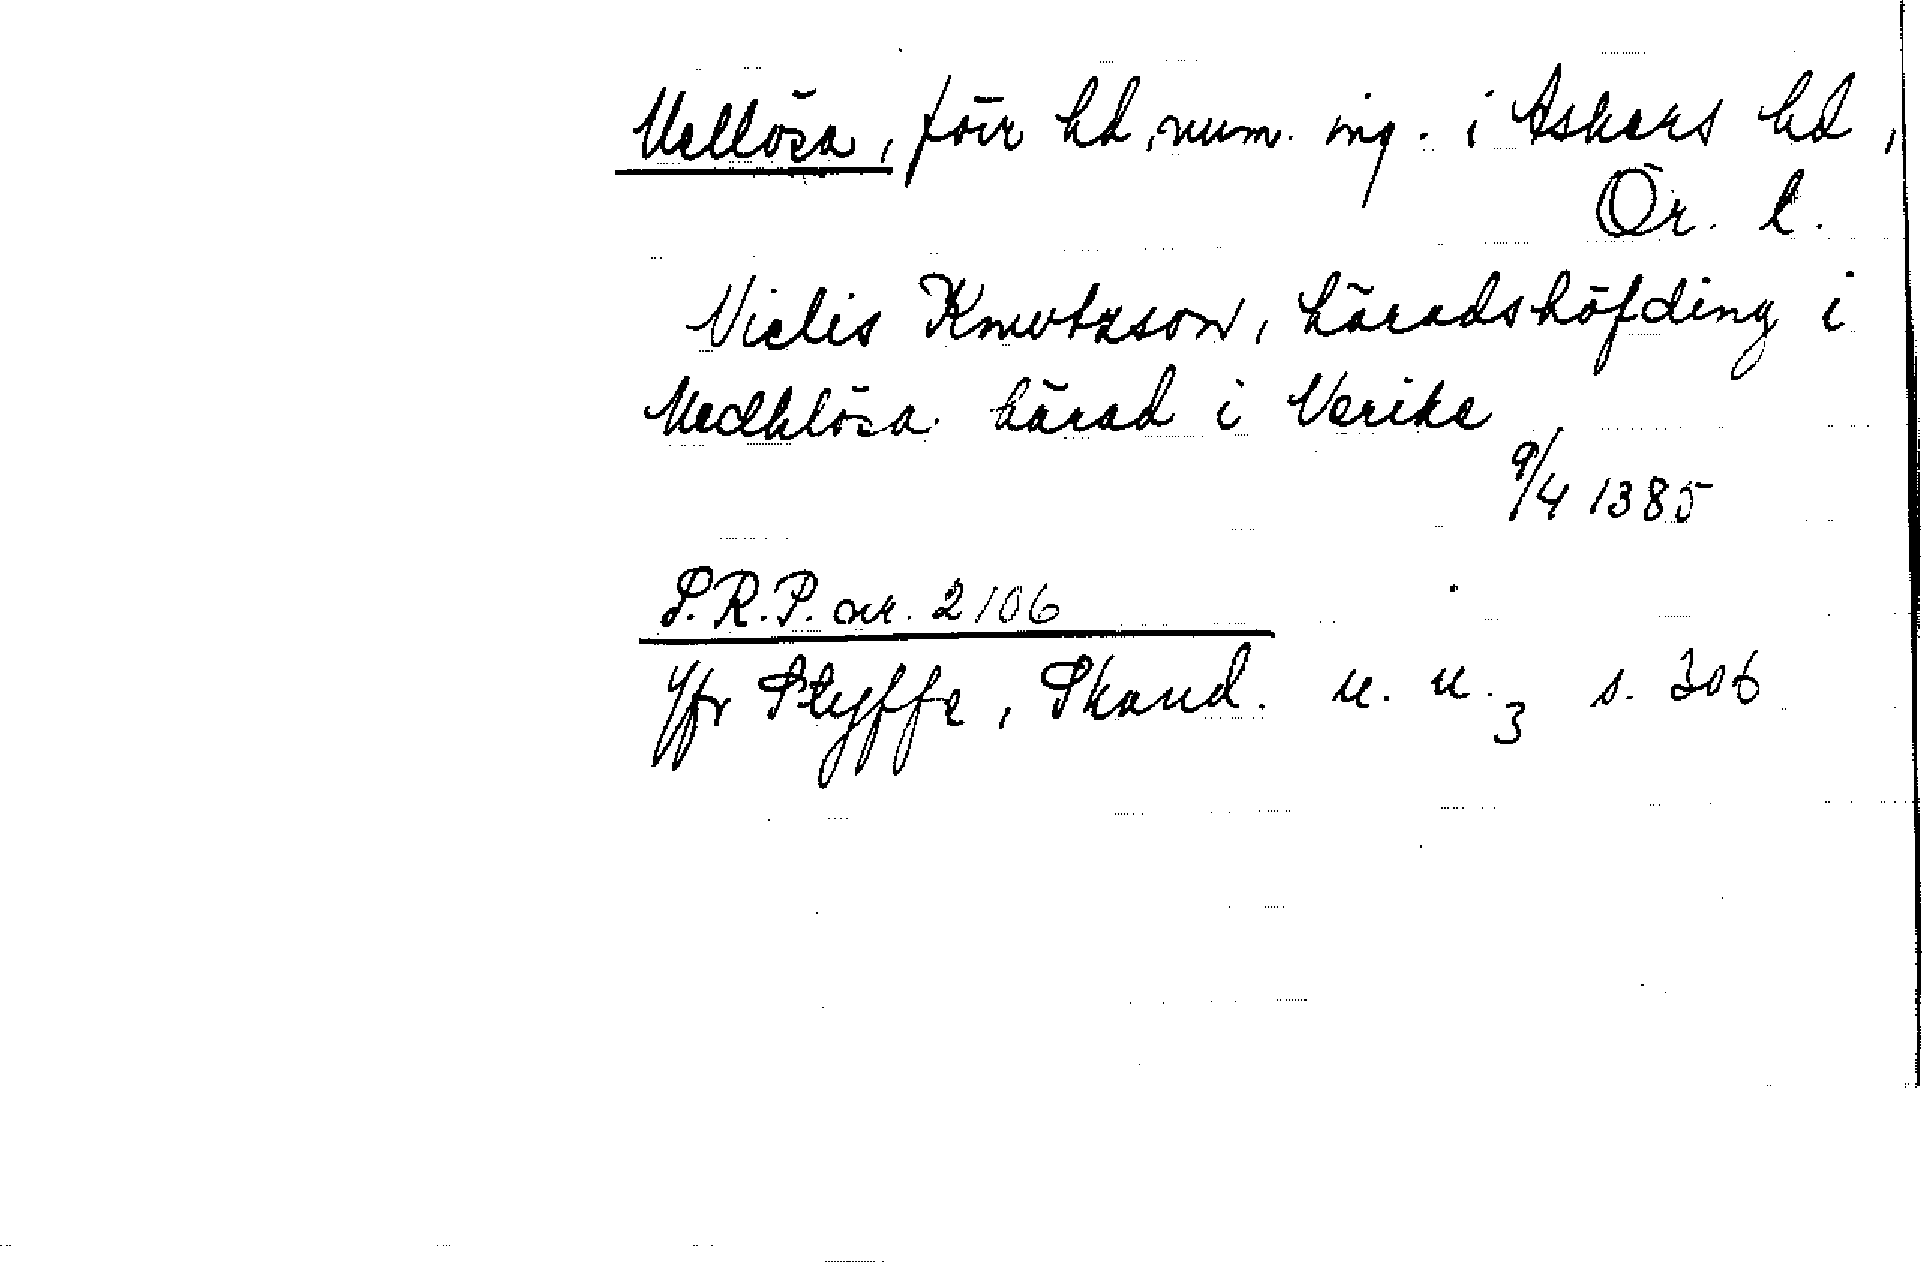 Mellösa, förr hd, num. ing. i Askers hd,
Ör. l.
Niclis Knwtzson, häradshöfding i
Medhlösa härad i Nerike
9/4 1385
S.R.P. nr. 2106
Jfr Styffe, Skand. u. u. 3 s. 306